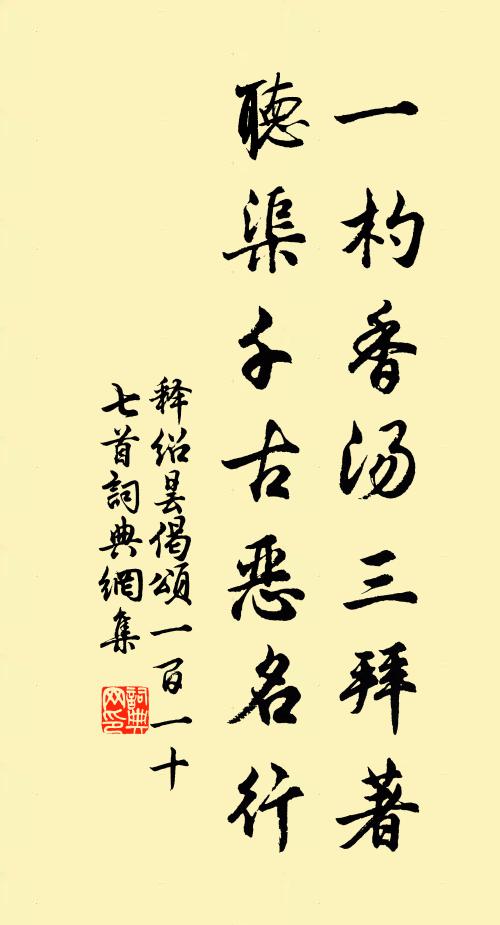 一杓香汤三拜著
聽渠千古恶名行
释绍昙偈頌一百一十
七首詞典網集
詞典
网印